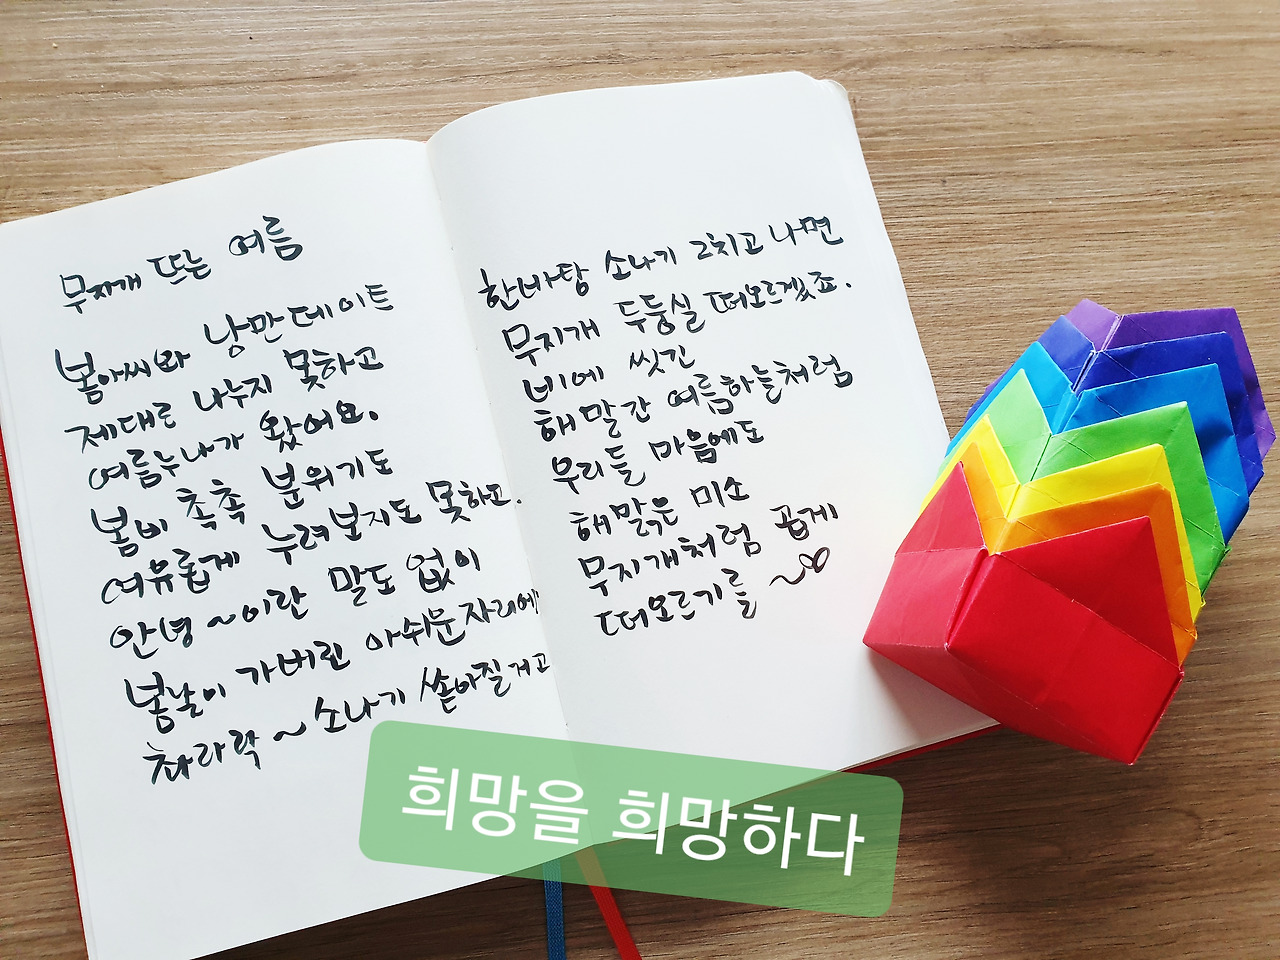 무지개 뜨는 여름
봄아씨와 낭만데이트
제대로 나누지 못하고
여름누나가 왔어요.
봄비 촉촉 분위기도
여유롭게 누려보지도 못하고.
안녕~이란 말도 없이
봄날이 가버린 아쉬운자리에
촤라락~소나기 쏟아질거고
한바탕 소나기 그치고 나면
무지개 두둥실 떠오르겠죠.
비에 씻긴
해말간 여름하늘처럼
우리들 마음에도
해맑은 미소
무지개처럼 곱게
떠오르기를~
희망을 희망하다